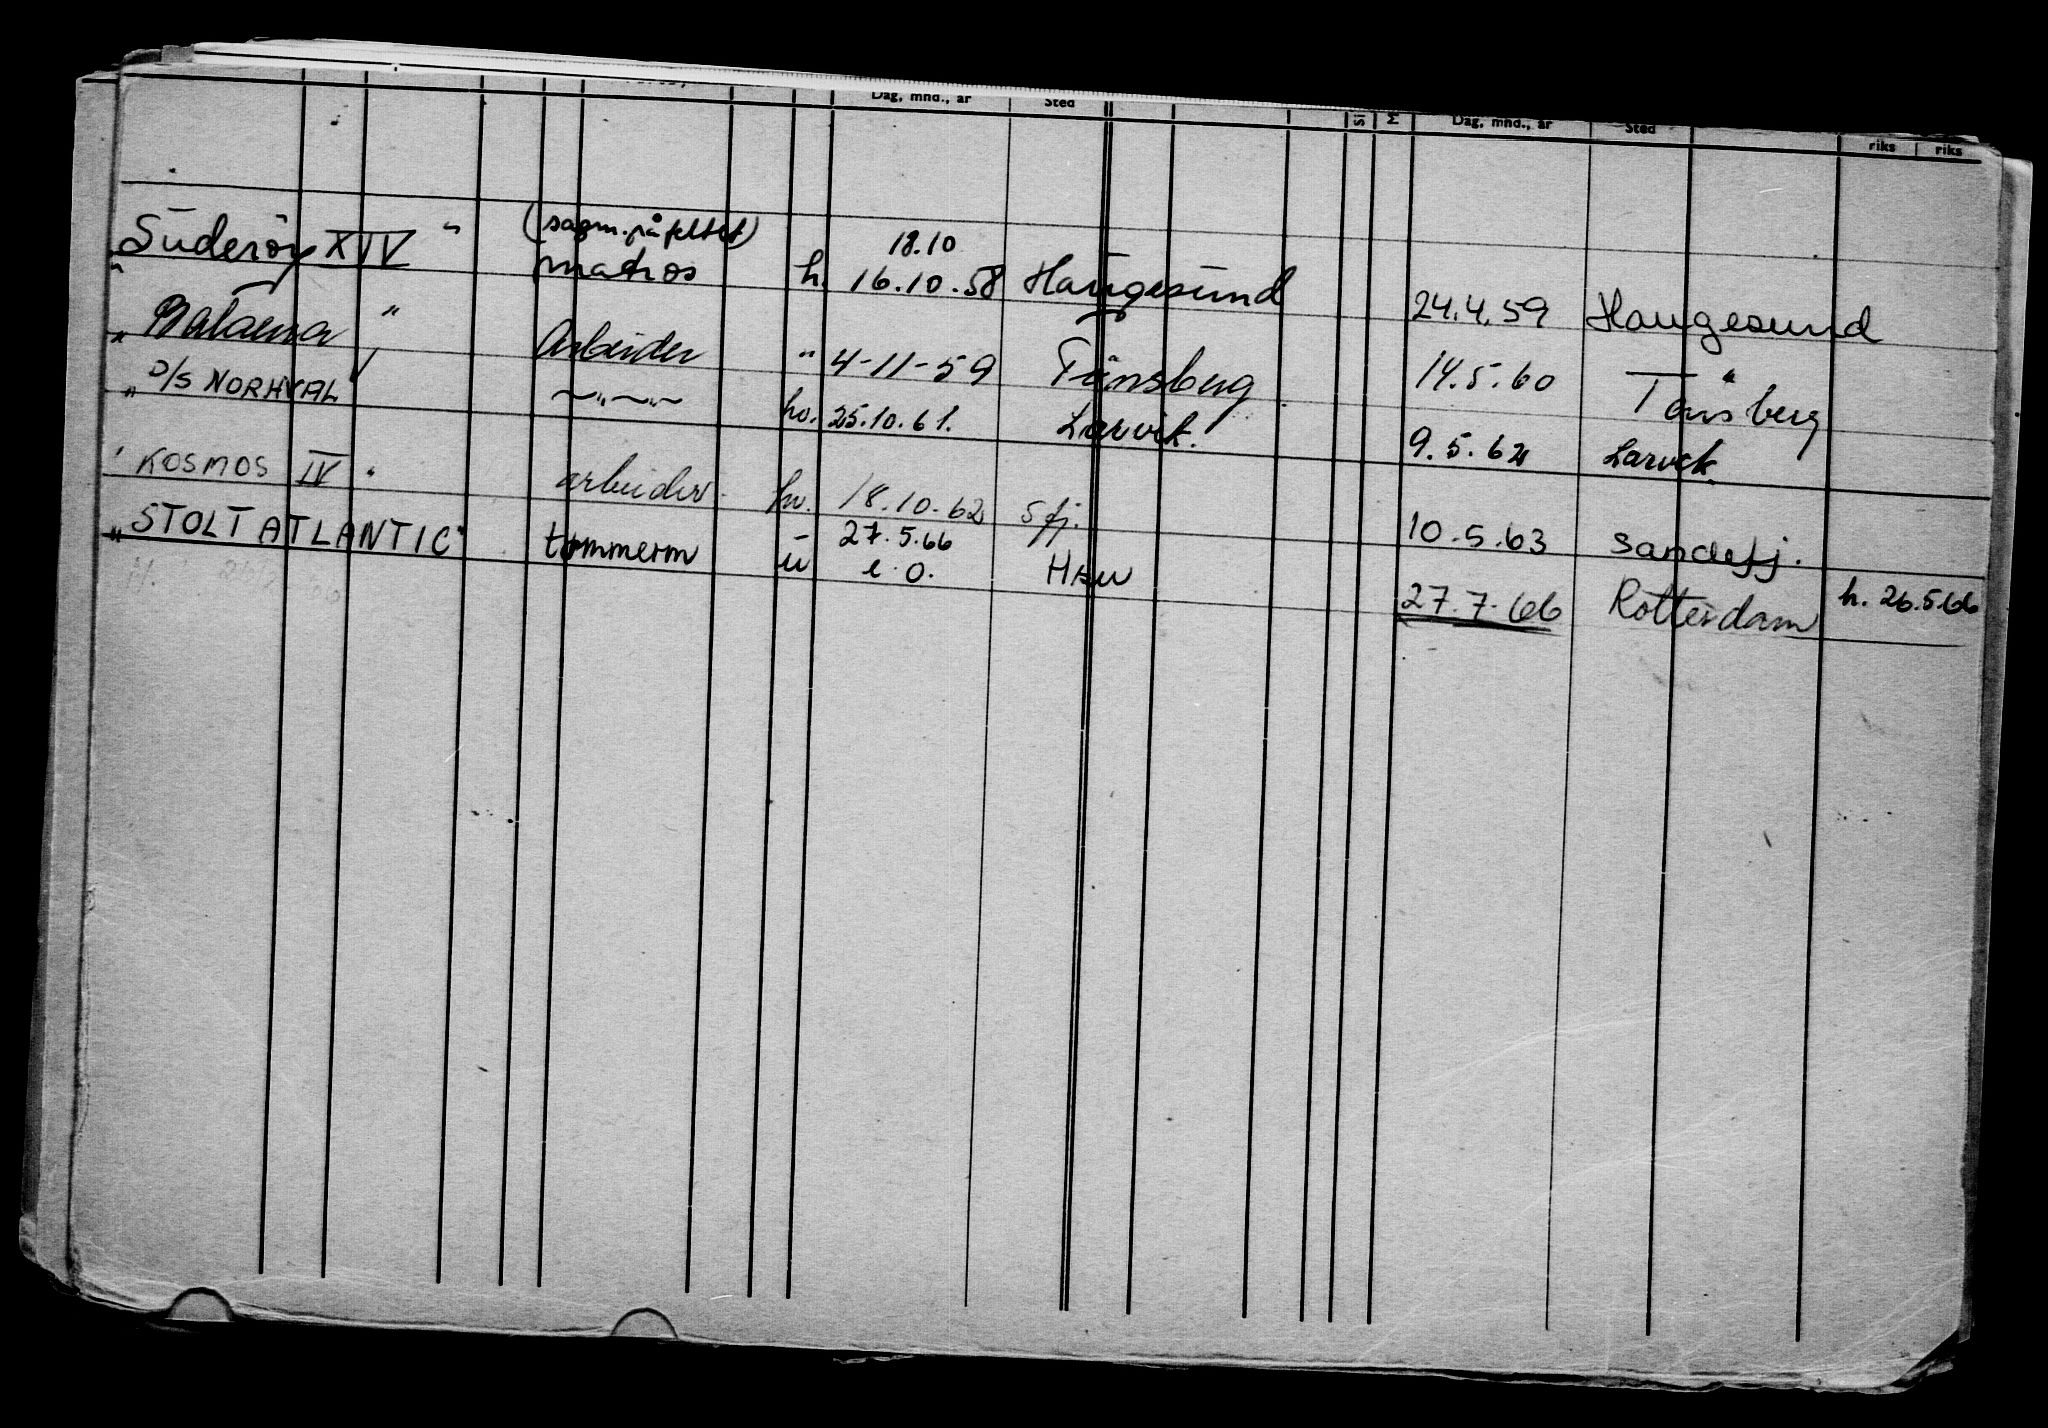 Dag, mnd., år Sted Dag, mnd., år Sted riks riks
Süderöy XIV " (sagm. på feltet) matros h. 18.10 16.10.58 Haugesund 24.4.59 Haugesund
" Balaena " Arbeider " 4-11-59 Tönsberg 14.5.60 Tönsberg
" D/S NORHVAL " —"—"— hv. 25.10.61. Larvik. 9.5.62 Larvik
" KOSMOS IV " arbeider hv. 18.10.62 Sfj. 10.5.63 Sandefj.
" STOLT ATLANTIC" tømmerm u 27.5.66 e.o. Hau 27.7.66 Rotterdam h. 26.5.66